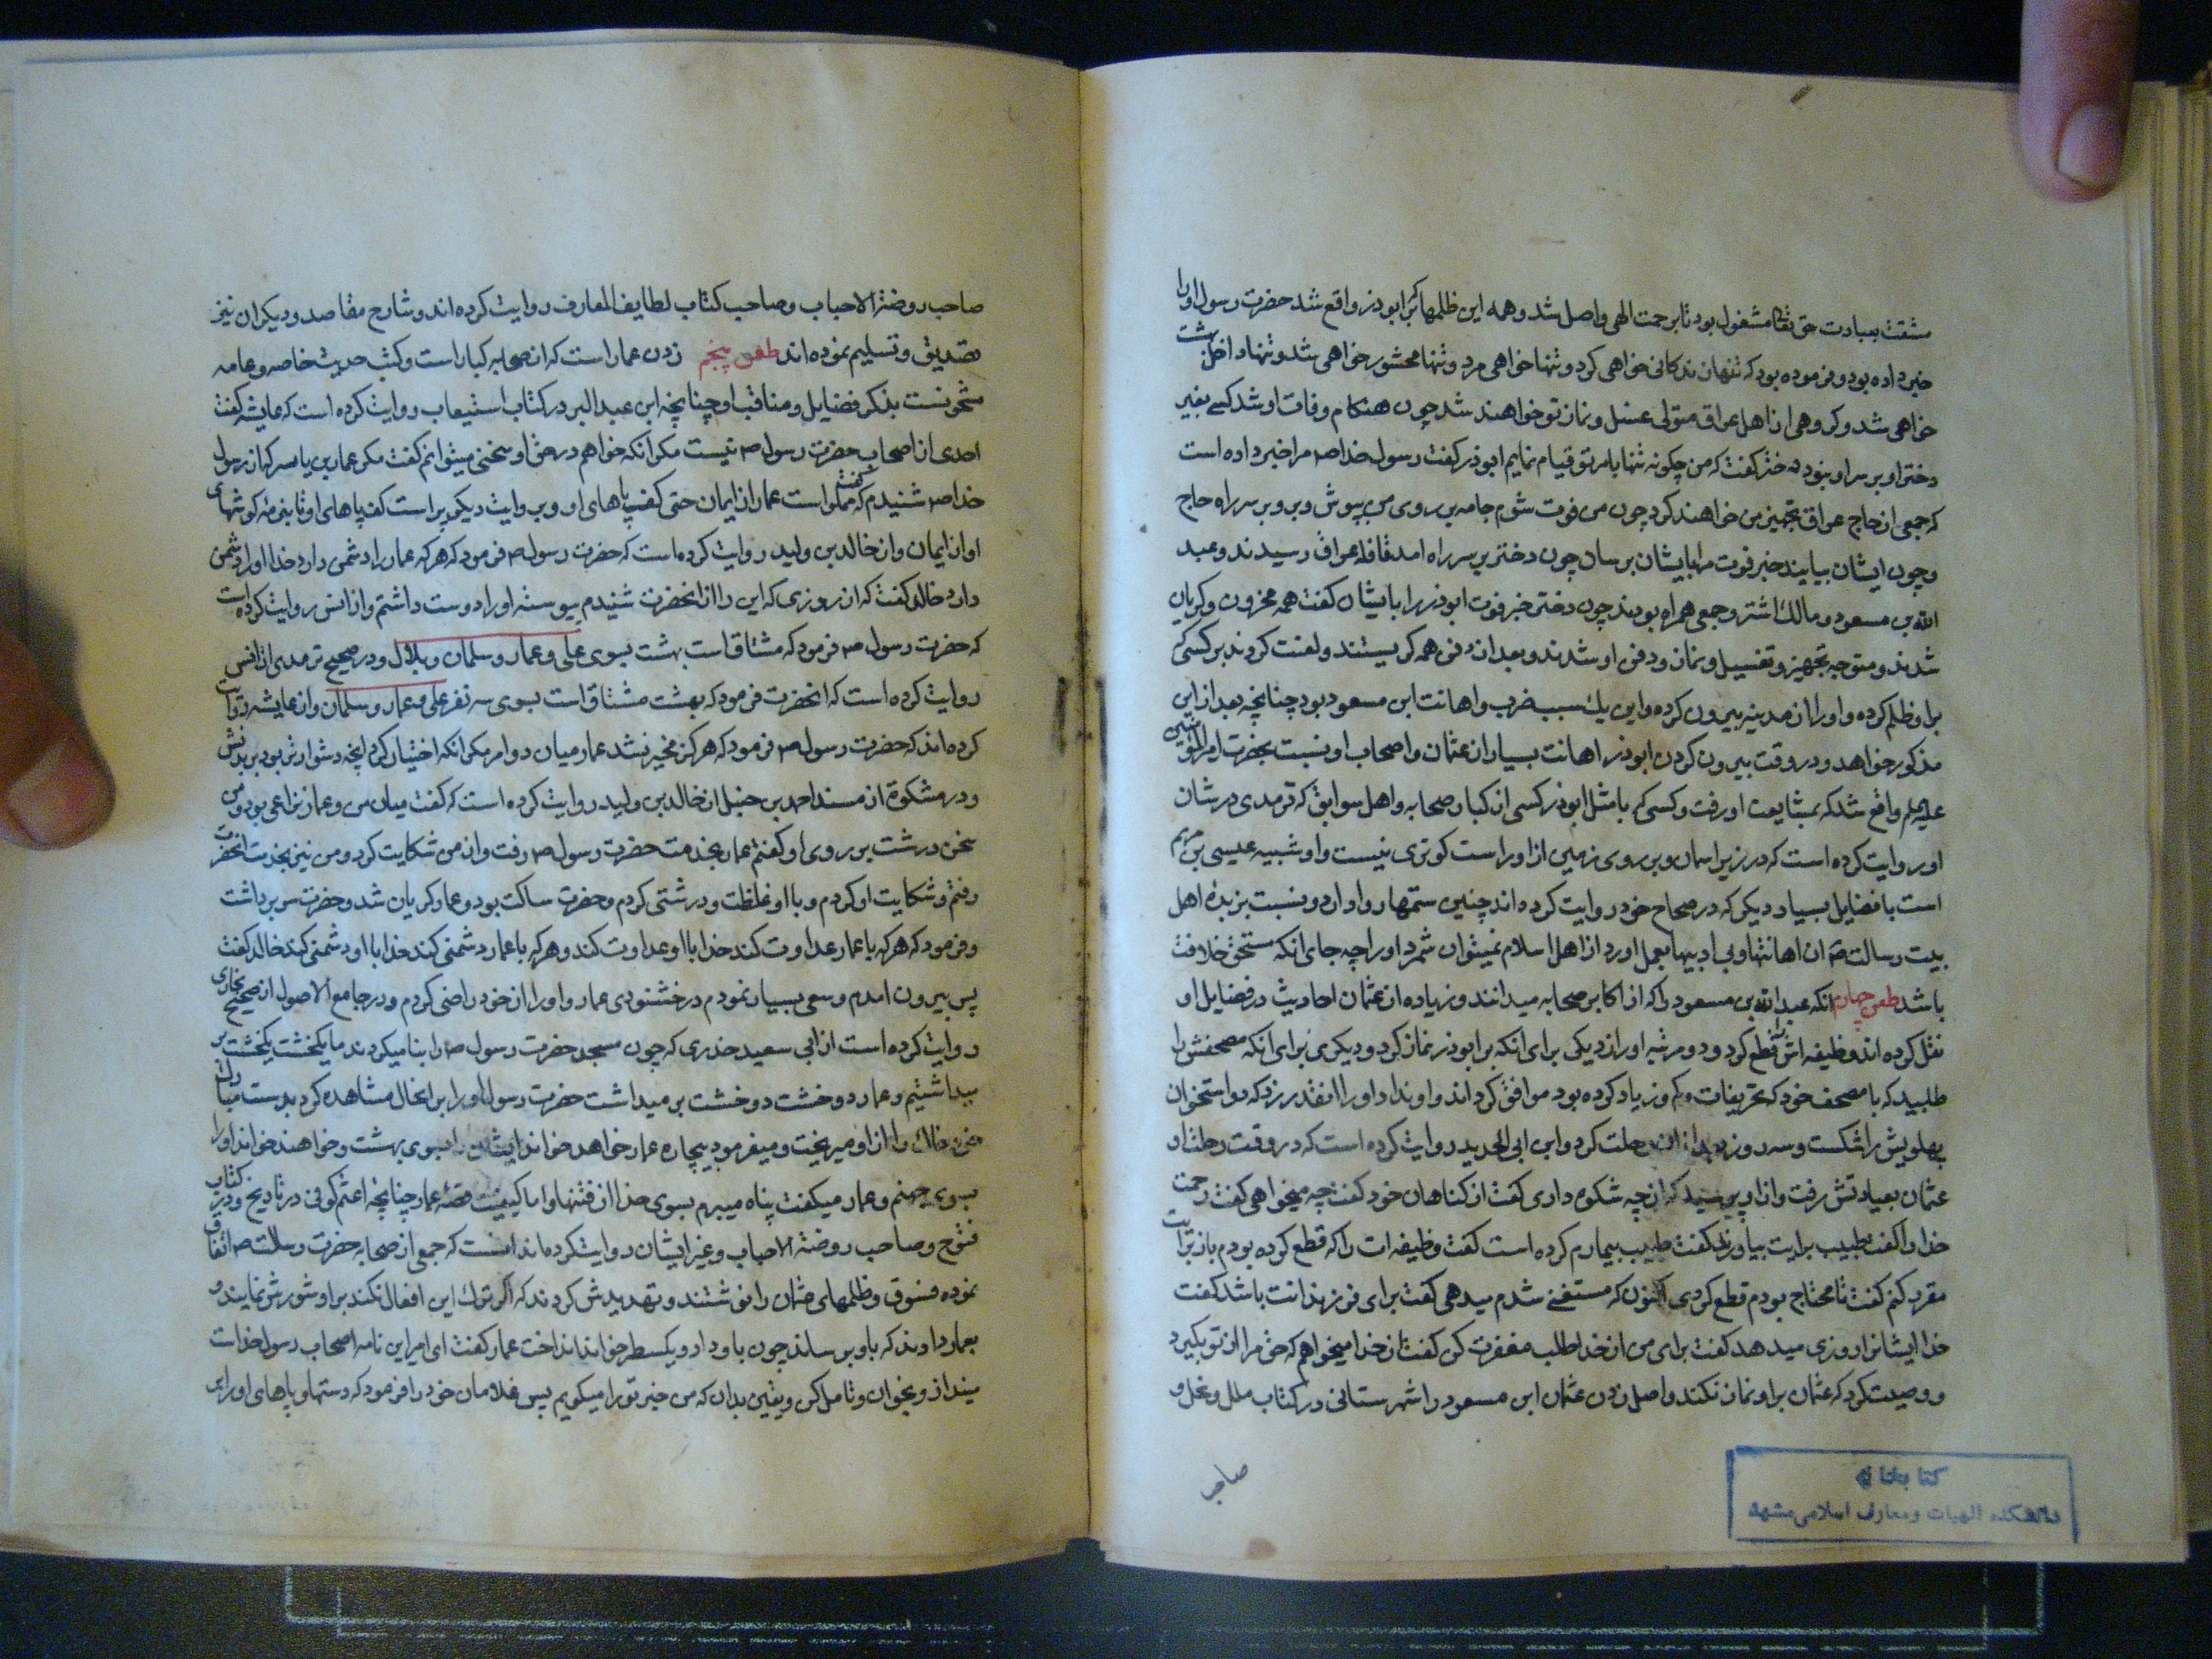 مشقت بعبادت حق تعالی مشغول بود تا برحمت الهی واصل شد و همه این ظلمها که بر ابوذر واقع شد حضرت رسول او را
خبر داده بود و فرموده بود که تنها زندکانی خواهی کرد و تنها خواهی مرد و تنها محشور خواهی شد و تنها داخل بهشت
خواهی شد و کروهی از اهل عراق متولی غسل و نماز تو خواهند شد چون هنکام وفات او شد کسی بغیر
دختر او بر سر او نبود دختر کفت که من چکونه تنها بامر تو قیام نمایم ابوذر کفت رسول خدا ص مرا خبر داده است
که جمعی از حاج عراق تجهیز من خواهند کرد چون من فوت شوم جامه بر روی من بپوش و برو بر سر راه حاج
و چون ایشان بیایند خبر فوت مرا بایشان برسان چون دختر بر سر راه امد قافله عراق رسیدند و عبد
الله بن مسعود و مالک اشتر و جمعی همراه بودند چون دختر خبر فوت ابوذر را بایشان کفت همه محزون و کریان
شدند و متوجه تجهیز و تغسیل و نماز و دفن او شدند و بعد از دفن همه کریستند و لعنت کردند بر کسی که
بر او ظلم کرده و او را از مدینه بیرون کرده و این یک سبب ضرب و اهانت ابن مسعود بود چنانچه بعد از این
مذکور خواهد و در وقت بیرون کردن ابوذر اهانت بسیار از عثمان و اصحاب او نسبت بحضرت امیر المؤمنین
علیه السلم واقع شد که بمشایعت او رفت و کسی که با مثل ابوذر کسی از کبار صحابه و اهل سوابق که ترمدی در شان
او روایت کرده است که در زیر اسمان و بر روی زمین از او راست کوتری نیست و او شبیه عیسی بن مریم
است با فضایل بسیار دیکر که در صحاح خود روایت کرده اند چنین ستمها روا دارد و نسبت بزبدۀ اهل
بیت رسالت ص ان اهانتها و بی ادبیها بعمل اورد از اهل اسلام نمیتوان شمرد او را چه جای انکه مستحق خلافت
باشد طعن چهارم انکه عبد الله بن مسعود را که از اکابر صحابه میدانند و زیاده از عثمان احادیث در فضایل او
نقل کرده اند وظیفه اش را قطع کرد و دو مرتبه او را زد یکی برای انکه بر ابوذر نماز کرد و دیکری برای انکه مصحفش را
طلبید که با مصحف خود که تحریفات و کم و زیاد کرده بود موافق کرداند و او نداد او را انقدر زد که دو استخوان
پهلویش را شکست و سه روز بعد از ان رحلت کرد و ابن ابی الحدید روایت کرده است که در وقت رحلت او
عثمان بعیادتش رفت و از او پرسید که از چه شکوه داری کفت از کناهان خود کفت چه میخواهی کفت رحمت
خدا را کفت طبیب برایت بیاورند کفت طبیب بیمارم کرده است کفت وظیفه ات را که قطع کرده بودم باز برایت
مقرر کنم کفت تا محتاج بودم قطع کردی اکنون که مستغنی شدم میدهی کفت برای فرزندانت باشد کفت
خدا ایشانرا روزی میدهد کفت برای من از خدا طلب مغفرت کن کفت از خدا میخواهم که حق مرا از تو بکیرد
و وصیت کرد که عثمان بر او نماز نکند و اصل زدن عثمان ابن مسعود را شهرستانی در کتاب ملل و نحل و
صاحب
کتابخانه
دانشکده الهیات و معارف اسلامی مشهد
صاحب روضة الاحباب و صاحب کتاب لطایف المعارف روایت کرده اند و شارح مقاصد و دیکران نیز
تصدیق و تسلیم نموده اند طعن پنجم زدن عمار است که از صحابه کبار است و کتب حدیث خاصه و عامه
مشحونست بذکر فضایل و مناقب او چنانچه ابن عبد البر در کتاب استیعاب روایت کرده است که عایشه کفت
احدی از اصحاب حضرت رسول ص نیست مکر انکه خواهم در حق او سخنی میتوانم کفت مکر عمار بن یاسر که از رسول
خدا ص شنیدم که کفت مملو است عمار از ایمان حتی کف پاهای او و بروایت دیکر پر است کف پاهای او تا بنرمۀ کوشهای
او از ایمان و از خالد بن ولید روایت کرده است که حضرت رسول ص فرمود که هر که عمار را دشمن دارد خدا او را دشمن
دارد خالد کفت که از روزی که این را از انحضرت شنیدم پیوسته او را دوست داشتم و از انس روایت کرده است
که حضرت رسول ص فرمود که مشتاق است بهشت بسوی علی و عمار و سلمان و بلال و در صحیح ترمدی از انس
روایت کرده است که انحضرت فرمود که بهشت مشتاق است بسوی سه نفر علی و عمار و سلمان و از عایشه روایت
کرده اند که حضرت رسول ص فرمود که هرکز مخیر نشد عمار میان دو امر مکر انکه اختیار کرد انچه دشوارتر بود بر بدنش
و در مشکوة از مسند احمد بن حنبل از خالد بن ولید روایت کرده است که کفت میان من و عمار نزاعی بود و من
سخن درشت بر روی او کفتم عمار بخدمت حضرت رسول ص رفت و از من شکایت کرد و من نیز بخدمت انحضرت
رفتم و شکایت او کردم و با او غلظت و درشتی کردم و حضرت ساکت بود و عمار کریان شد و حضرت سر برداشت
و فرمود که هر که با عمار عداوت کند خدا با او عداوت کند و هر که با عمار دشمنی کند خدا با او دشمنی کند خالد کفت
پس بیرون امدم و سعی بسیار نمودم در خشنودی عمار و او را از خود راضی کردم و در جامع الاصول از صحیح بخاری
روایت کرده است از ابی سعید خدری که چون مسجد حضرت رسول ص را بنا میکردند ما یکخشت یکخشت بر
میداشتیم و عمار دو خشت دو خشت بر میداشت حضرت رسول او را بر انحال مشاهده کرد بدست مبارک
خود خاک را از او میریخت و میفرمود بیچاره عمار خواهد خواند ایشان را بسوی بهشت و خواهند خواند او را
بسوی جهنم و عمار میکفت پناه میبرم بسوی خدا از فتنها و اما کیفیت قصۀ عمار چنانچه اعثم کوفی در تاریخ و در کتاب
فتوح و صاحب روضة الاحباب و غیر ایشان روایت کرده اند انست که جمعی از صحابه حضرت رسالت ص اتفاق
نموده فسوق و ظلمهای عثمان را نوشتند و تهدیدش کردند که اکر ترک این افعال نکند بر او شورش نمایند و
بعمار دادند که باو برساند چون باو داد و یکسطر خواند انداخت عمار کفت ای امیر این نامه اصحاب رسول خداست
مینداز و بخوان و تامل کن و یقین بدان که من خیر تو را میکویم پس غلامان خود را فرمود که دستها و پاهای او را بر